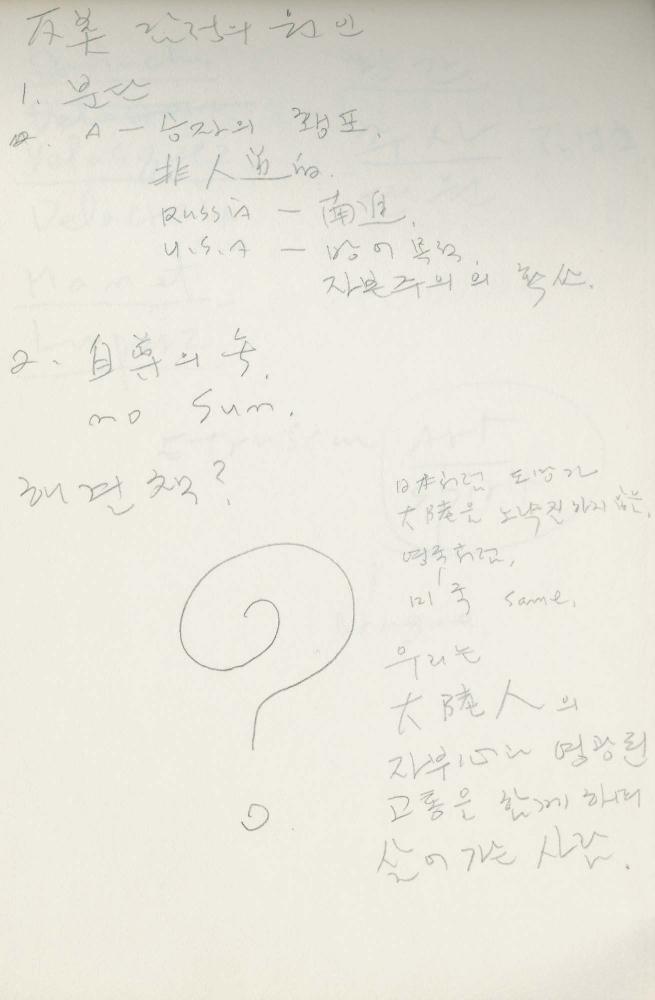 反美 감정의 원인
1. 분단
A — 승자의 횡포.
非人道的.
RUSSIA — 南進.
U.S.A — 방어 목적.
자본주의의 확산.
2. 自尊의 눈.
no sun.
해결책?
日本처럼 도망가
大陸을 노략질 하지 않은.
영국처럼,
미국 same.
우리는
大陸人의
자부心과 영광된
고통을 함께 하며
살아 가는 사람.